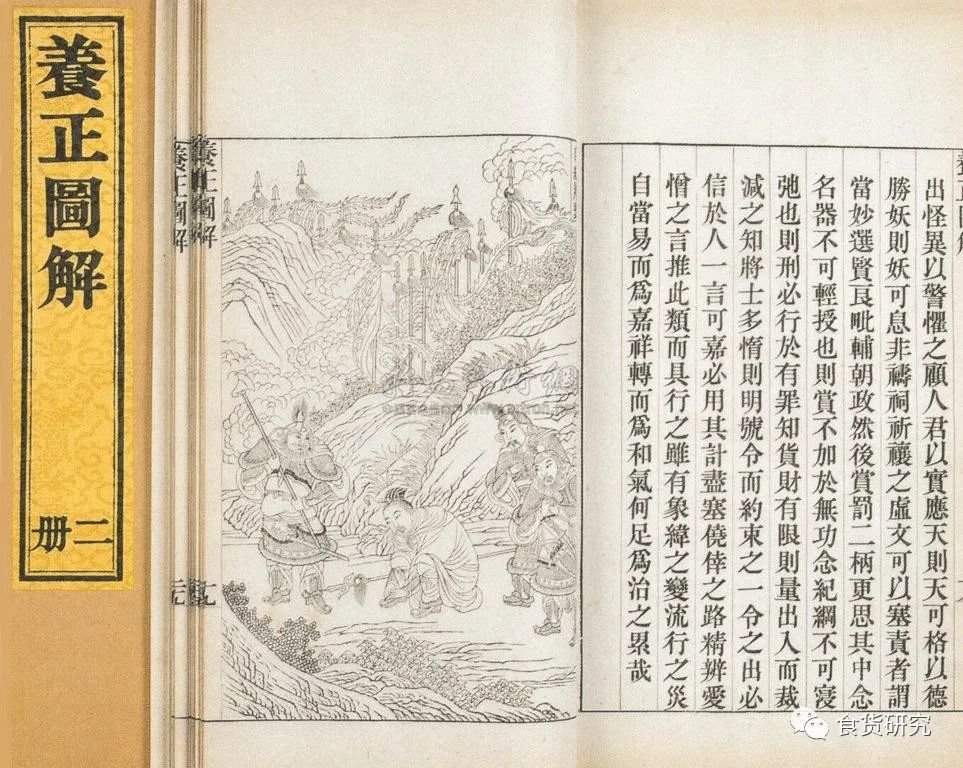 養正圖解
二冊
養正圖解
養正圖解
出怪異以警懼之顧人君以實應天則天可格以德
勝妖則妖可息非禱祠祈禳之虛文可以塞責者謂
當妙選賢良毗輔朝政然後賞罰二柄更思其中念
名器不可輕授也則賞不加於無功念紀綱不可寖
弛也則刑必行於有罪知貨財有限則量出入而裁
減之知將士多惰則明號令而約束之一令之出必
信於人一言可嘉必用其計盡塞僥倖之路精辨愛
憎之言推此類而具行之雖有象緯之變流行之災
自當易而爲嘉祥轉而爲和氣何足爲治之累哉
食货研究